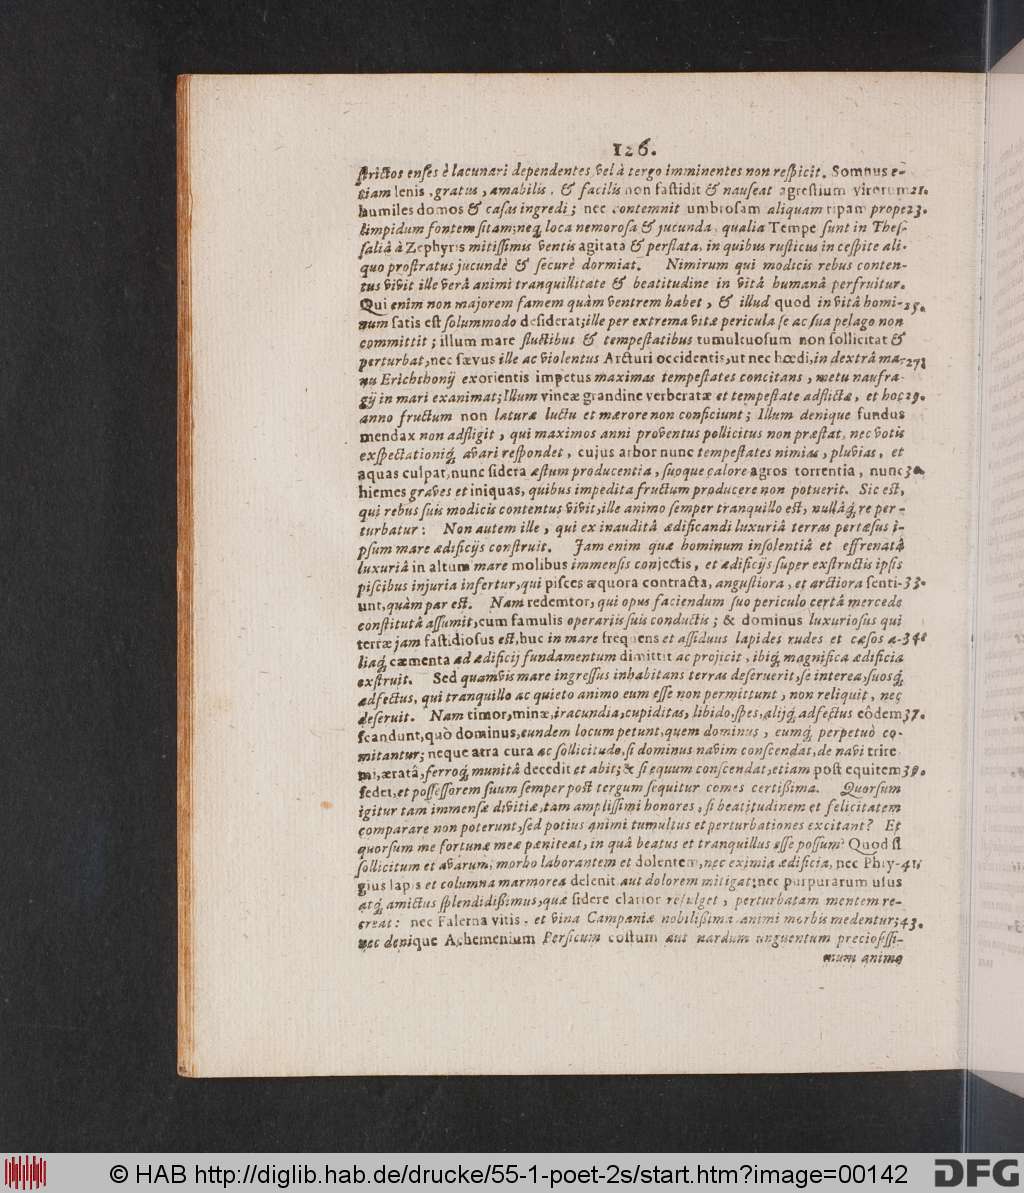 126.
ſtrictos enſes è lacunari dependentes vel à tergo imminentes non reſpicit. Somnus e-
tiam lenis, gratus, amabilis, & facilis non faſtidit & nauſeat agreſtium virorum 21.
humiles domos & caſas ingredi; nec contemnit umbroſam aliquam ripam prope 23.
limpidum fontem ſitam; neq́ loca nemoroſa & jucunda, qualia Tempe ſunt in Theſ-
ſaliâ à Zephyris mitiſſimis ventis agitata & perflata, in quibus ruſticus in ceſpite ali-
quo proſtratus jucundè & ſecurè dormiat. Nimirum qui modicis rebus conten-
tus vivit ille verâ animi tranquillitate & beatitudine in vitâ humanâ perfruitur.
Qui enim non majorem famem quàm ventrem habet, & illud quod in vitâ homi- 25.
num ſatis eſt ſolummodo deſiderat; ille per extrema vitæ pericula ſe ac ſua pelago non
committit; illum mare fluctibus & tempeſtatibus tumultuoſum non ſollicitat &
perturbat, nec ſævus ille ac violentus Arcturi occidentis, ut nec hœdi, in dextrâ ma- 27.
nu Erichthonij exorientis impetus maximas tempeſtates concitans, metu naufra-
gij in mari exanimat; Illum vineæ grandine verberatæ et tempeſtate adflictæ, et hoc 29.
anno fructum non laturæ luctu et mærore non conficiunt; Illum denique fundus
mendax non adfligit, qui maximos anni proventus pollicitus non præſtat, nec votis
exſpectationiq́ avari reſpondet, cujus arbor nunc tempeſtates nimias, pluvias, et
aquas culpat, nunc ſidera æſtum producentia, ſuoque calore agros torrentia, nunc 30.
hiemes graves et iniquas, quibus impedita fructum producere non potuerit. Sic eſt,
qui rebus ſuis modicis contentus vivit, ille animo ſemper tranquillo eſt, nullâq́ re per-
turbatur: Non autem ille, qui ex inauditâ ædificandi luxuriâ terras pertæſus i-
pſum mare ædificijs conſtruit. Jam enim quæ hominum inſolentiâ et effrenatâ
luxuriâ in altum mare molibus immenſis conjectis, et ædificijs ſuper exſtructis ipſis
piſcibus injuria infertur, qui piſces æquora contracta, anguſtiora, et arctiora ſenti- 33.
unt, quàm par eſt. Nam redemtor, qui opus faciendum ſuo periculo certâ mercede
conſtitutâ aſſumit, cum famulis operariis ſuis conductis; & dominus luxurioſus qui
terræ jam faſtidioſus eſt, huc in mare frequens et aſſiduus lapides rudes et cæſos a- 34.
liaq́ cæmenta ad ædificij fundamentum dimittit ac projicit, ibiq́ magnifica ædificia
exſtruit. Sed quamvis mare ingreſſus inhabitans terras deſeruerit, ſe interea, ſuosq́
adfectus, qui tranquillo ac quieto animo eum eſſe non permittunt, non reliquit, nec
deſeruit. Nam timor, minæ, iracundia, cupiditas, libido, ſpes, alijq́ adfectus eôdem 37.
ſcandunt, quò dominus, eundem locum petunt, quem dominus, eumq́ perpetuò co-
mitantur; neque atra cura ac ſollicitudo, ſi dominus navim conſcendat, de navi trire
mi, æratâ, ferroq́ munitâ decedit et abit; & ſi equum conſcendat, etiam poſt equitem 39.
ſedet, et poſſeſſorem ſuum ſemper poſt tergum ſequitur comes certißima. Quorſum
igitur tam immenſæ divitiæ, tam ampliſſimi honores, ſi beatitudinem et felicitatem
comparare non poterunt, ſed potius animi tumultus et perturbationes excitant? Et
quorſum me fortunæ meæ pæniteat, in quâ beatus et tranquillus eſſe poſſum? Quod ſi
ſollicitum et avarum, morbo laborantem et dolentem, nec eximia ædificia, nec Phry- 41.
gius lapis et columna marmorea delenit aut dolorem mitigat; nec purpurarum uſus
atq́ amictus ſplendidißimus, quæ ſidere clarior refulget, perturbatam mentem re-
creat: nec Falerna vitis, et vina Campaniæ nobilißima animi morbis medentur; 43.
nec denique Achemenium Perſicum coſtum aut nardum unguentum precioſiſſi-
mum animo
© HAB http://diglib.hab.de/drucke/55-1-poet-2s/start.htm?image=00142
DFG